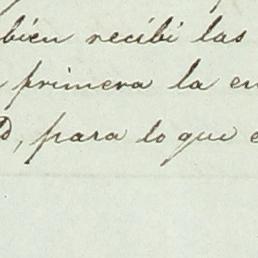 bién recibi las
primera la en
, para lo que e